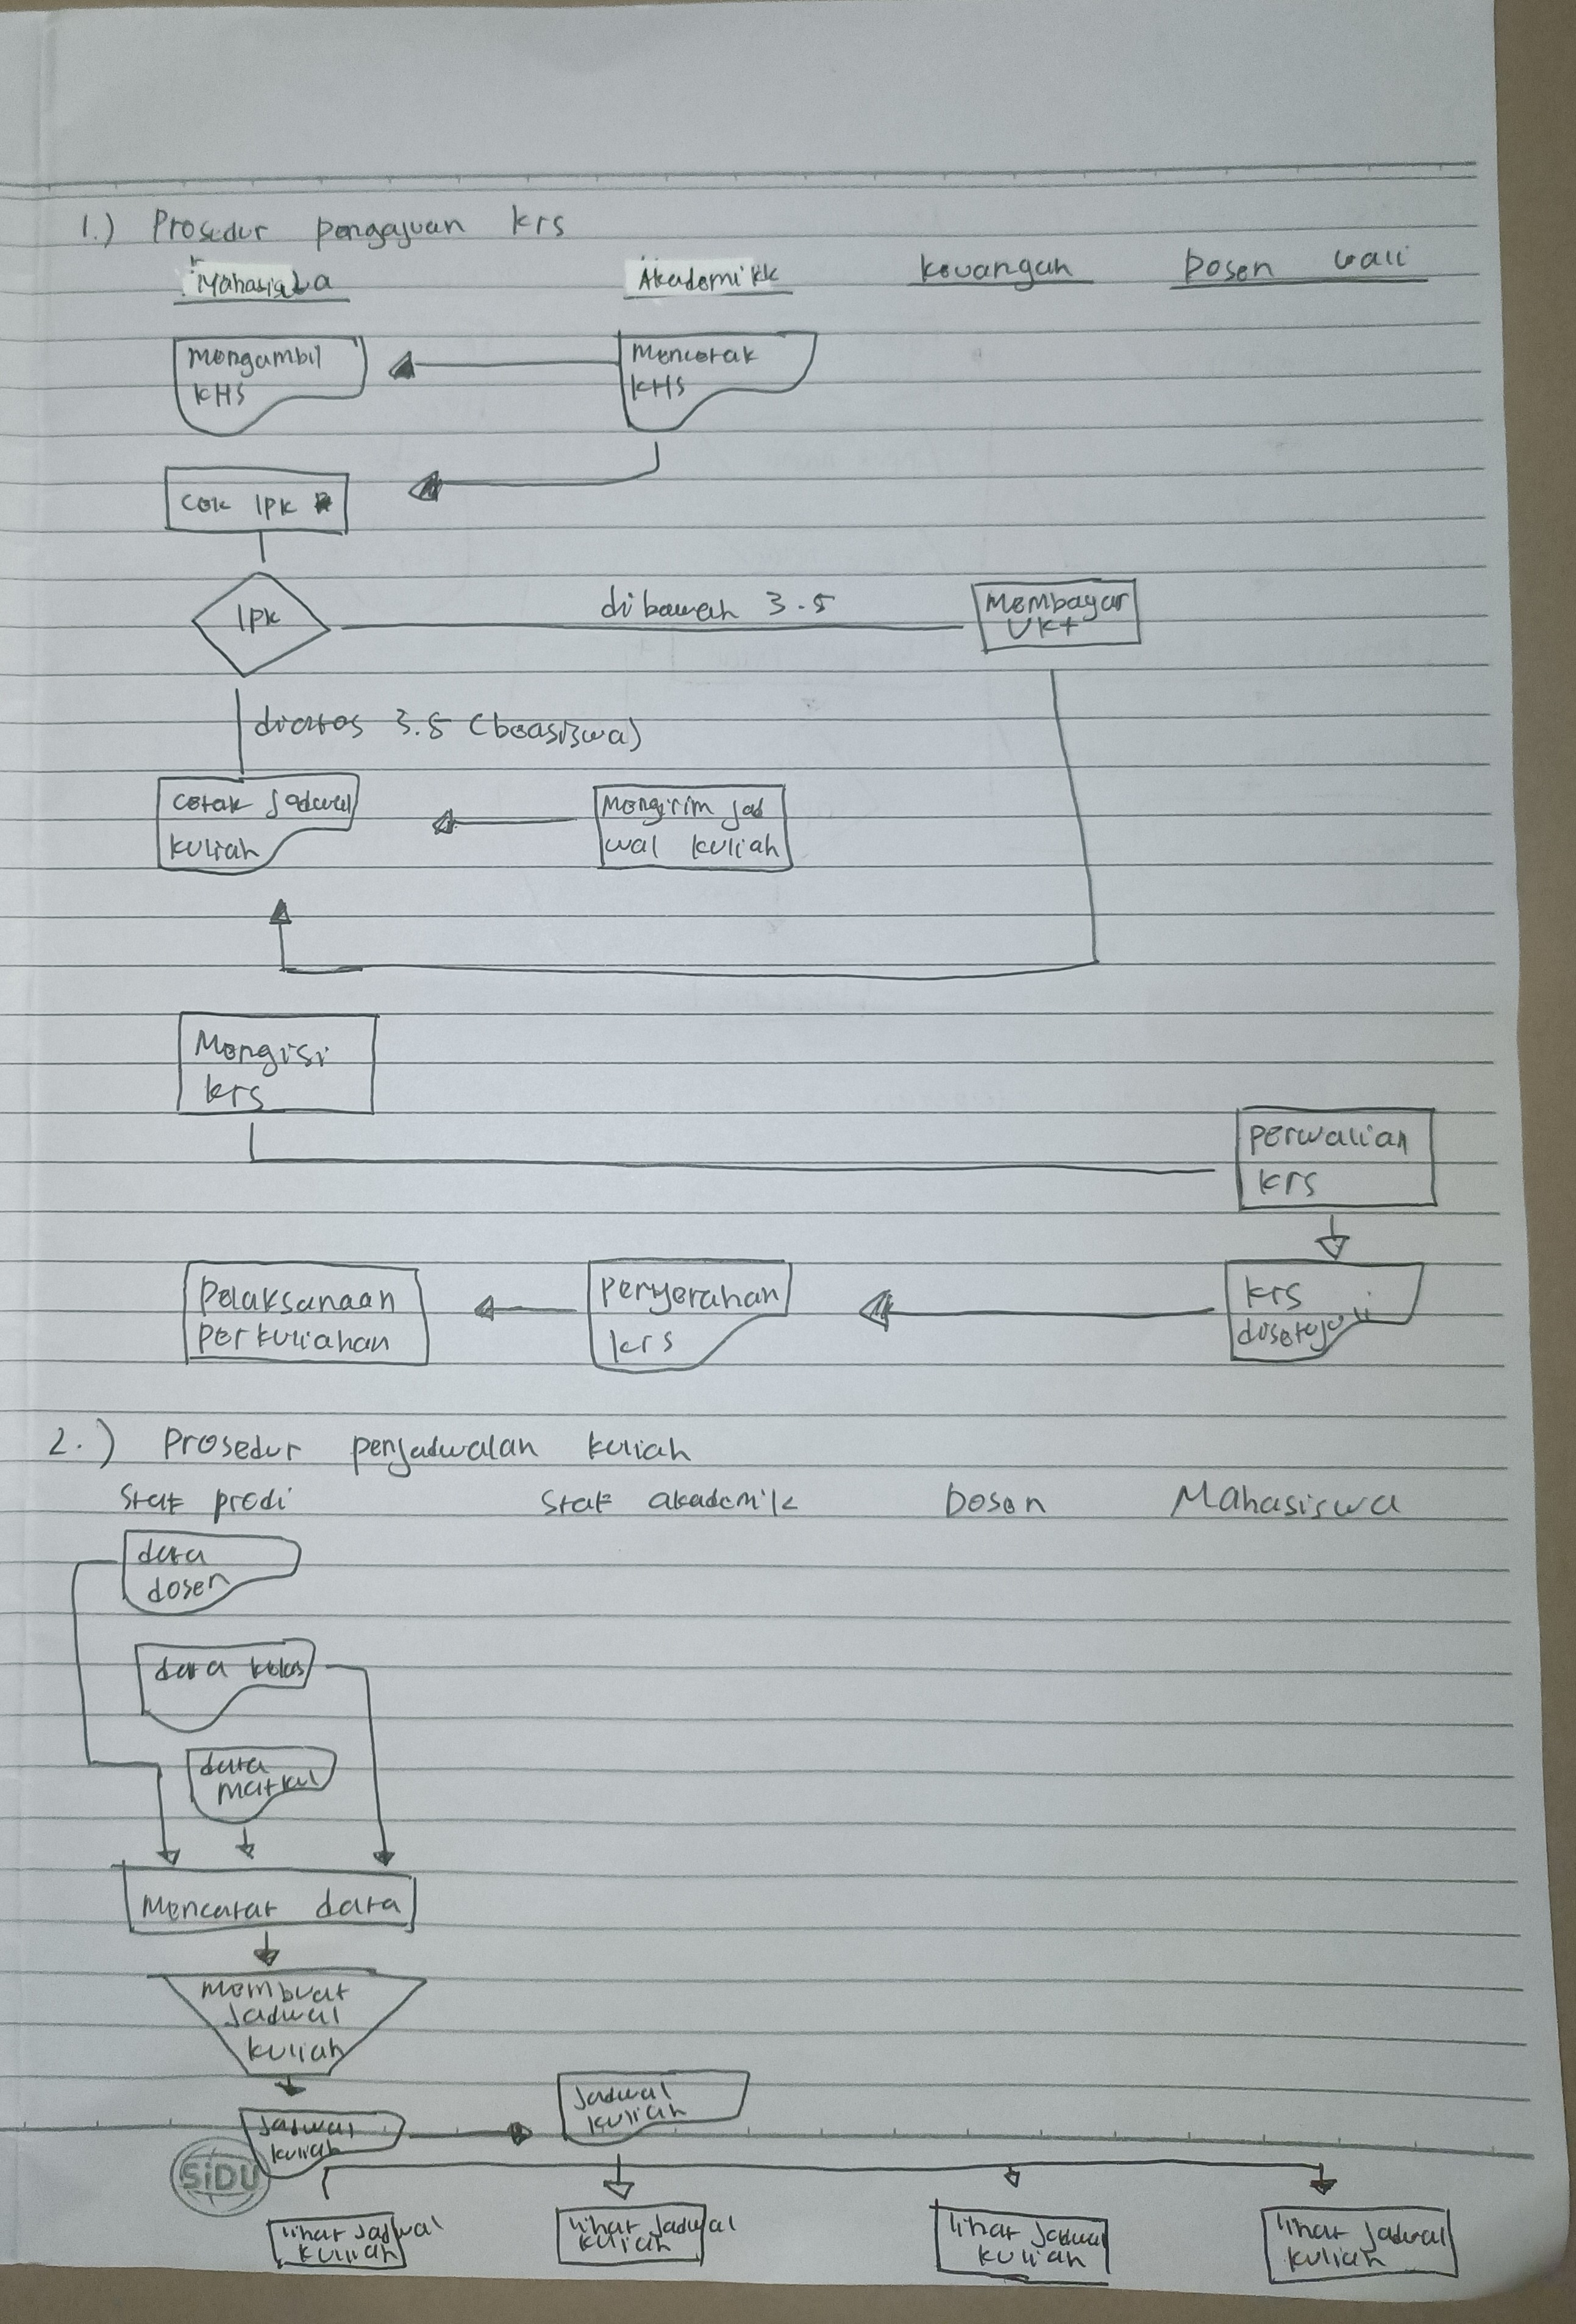 1.) Prosedur pengajuan krs
Mahasiswa Akademikk keuangan Dosen wali
Mengambil
KHS
Mencetak
KHS
Cek IPK
IPK
dibawah 3.5
Membayar
UKt
diatas 3.5 (beasiswa)
Cetak jadwal
kuliah
Mengirim jad
wal kuliah
Mengisi
krs
perwalian
krs
pelaksanaan
perkuliahan
Penyerahan
krs
krs
disetujui
2.) Prosedur penjadwalan kuliah
Staf prodi Staf akademik Dosen Mahasiswa
data
dosen
data kelas
data
matkul
Mencatat data
Membuat
Jadwal
kuliah
Jadwal
kuliah
Jadwal
kuliah
SiDU
lihat jadwal
kuliah
lihat jadwal
kuliah
lihat jadwal
kuliah
lihat jadwal
kuliah